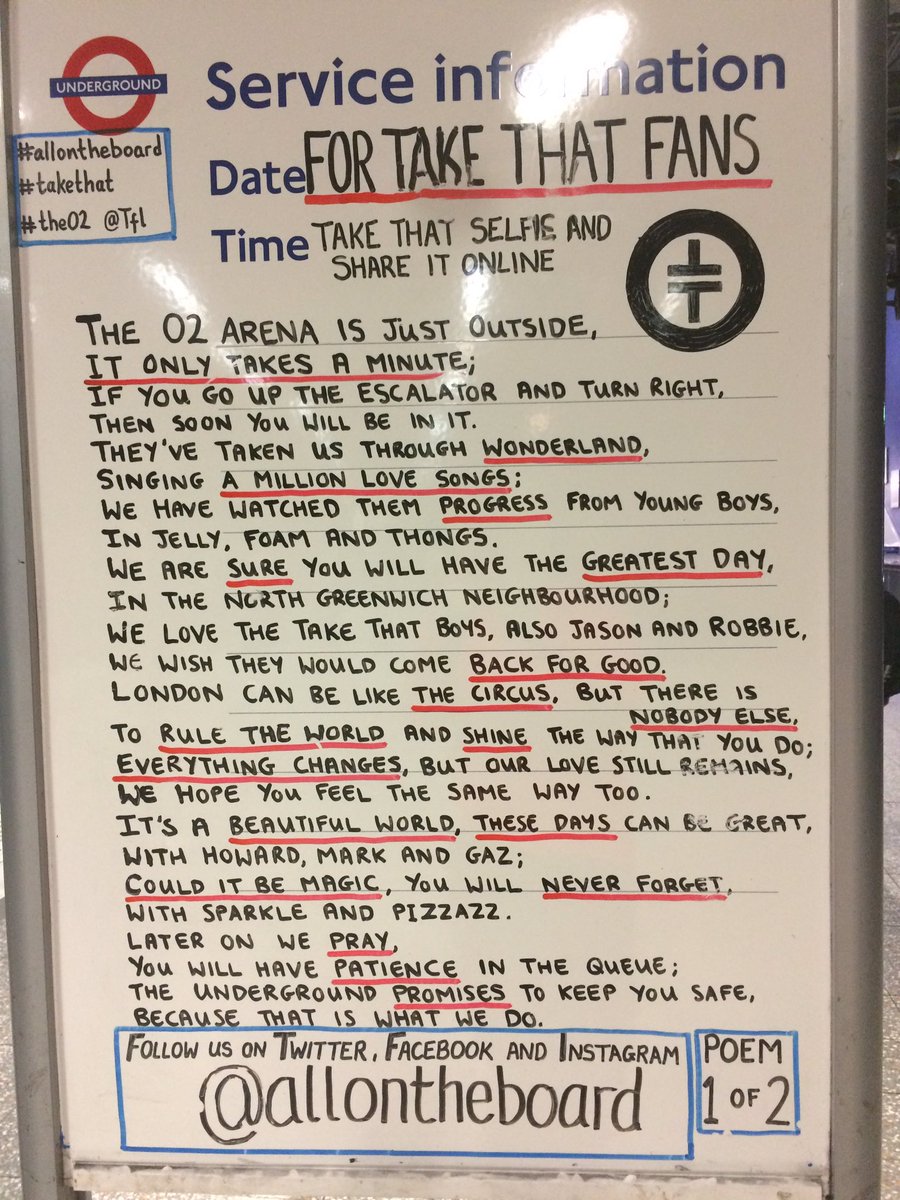 UNDERGROUND
Service information
#allontheboard
#takethat
#theO2 @Tfl
Date FOR TAKE THAT FANS
Time TAKE THAT SELFIE AND
SHARE IT ONLINE
THE O2 ARENA IS JUST OUTSIDE,
IT ONLY TAKES A MINUTE;
IF YOU GO UP THE ESCALATOR AND TURN RIGHT,
THEN SOON YOU WILL BE IN IT.
THEY'VE TAKEN US THROUGH WONDERLAND,
SINGING A MILLION LOVE SONGS;
WE HAVE WATCHED THEM PROGRESS FROM YOUNG BOYS,
IN JELLY, FOAM AND THONGS.
WE ARE SURE YOU WILL HAVE THE GREATEST DAY,
IN THE NORTH GREENWICH NEIGHBOURHOOD;
WE LOVE THE TAKE THAT BOYS, ALSO JASON AND ROBBIE,
WE WISH THEY WOULD COME BACK FOR GOOD.
LONDON CAN BE LIKE THE CIRCUS, BUT THERE IS
NOBODY ELSE,
TO RULE THE WORLD AND SHINE THE WAY THAT YOU DO;
EVERYTHING CHANGES, BUT OUR LOVE STILL REMAINS,
WE HOPE YOU FEEL THE SAME WAY TOO.
IT'S A BEAUTIFUL WORLD, THESE DAYS CAN BE GREAT,
WITH HOWARD, MARK AND GAZ;
COULD IT BE MAGIC, YOU WILL NEVER FORGET,
WITH SPARKLE AND PIZZAZZ.
LATER ON WE PRAY,
YOU WILL HAVE PATIENCE IN THE QUEUE;
THE UNDERGROUND PROMISES TO KEEP YOU SAFE,
BECAUSE THAT IS WHAT WE DO.
FOLLOW US ON TWITTER, FACEBOOK AND INSTAGRAM
@allontheboard
POEM
1 OF 2